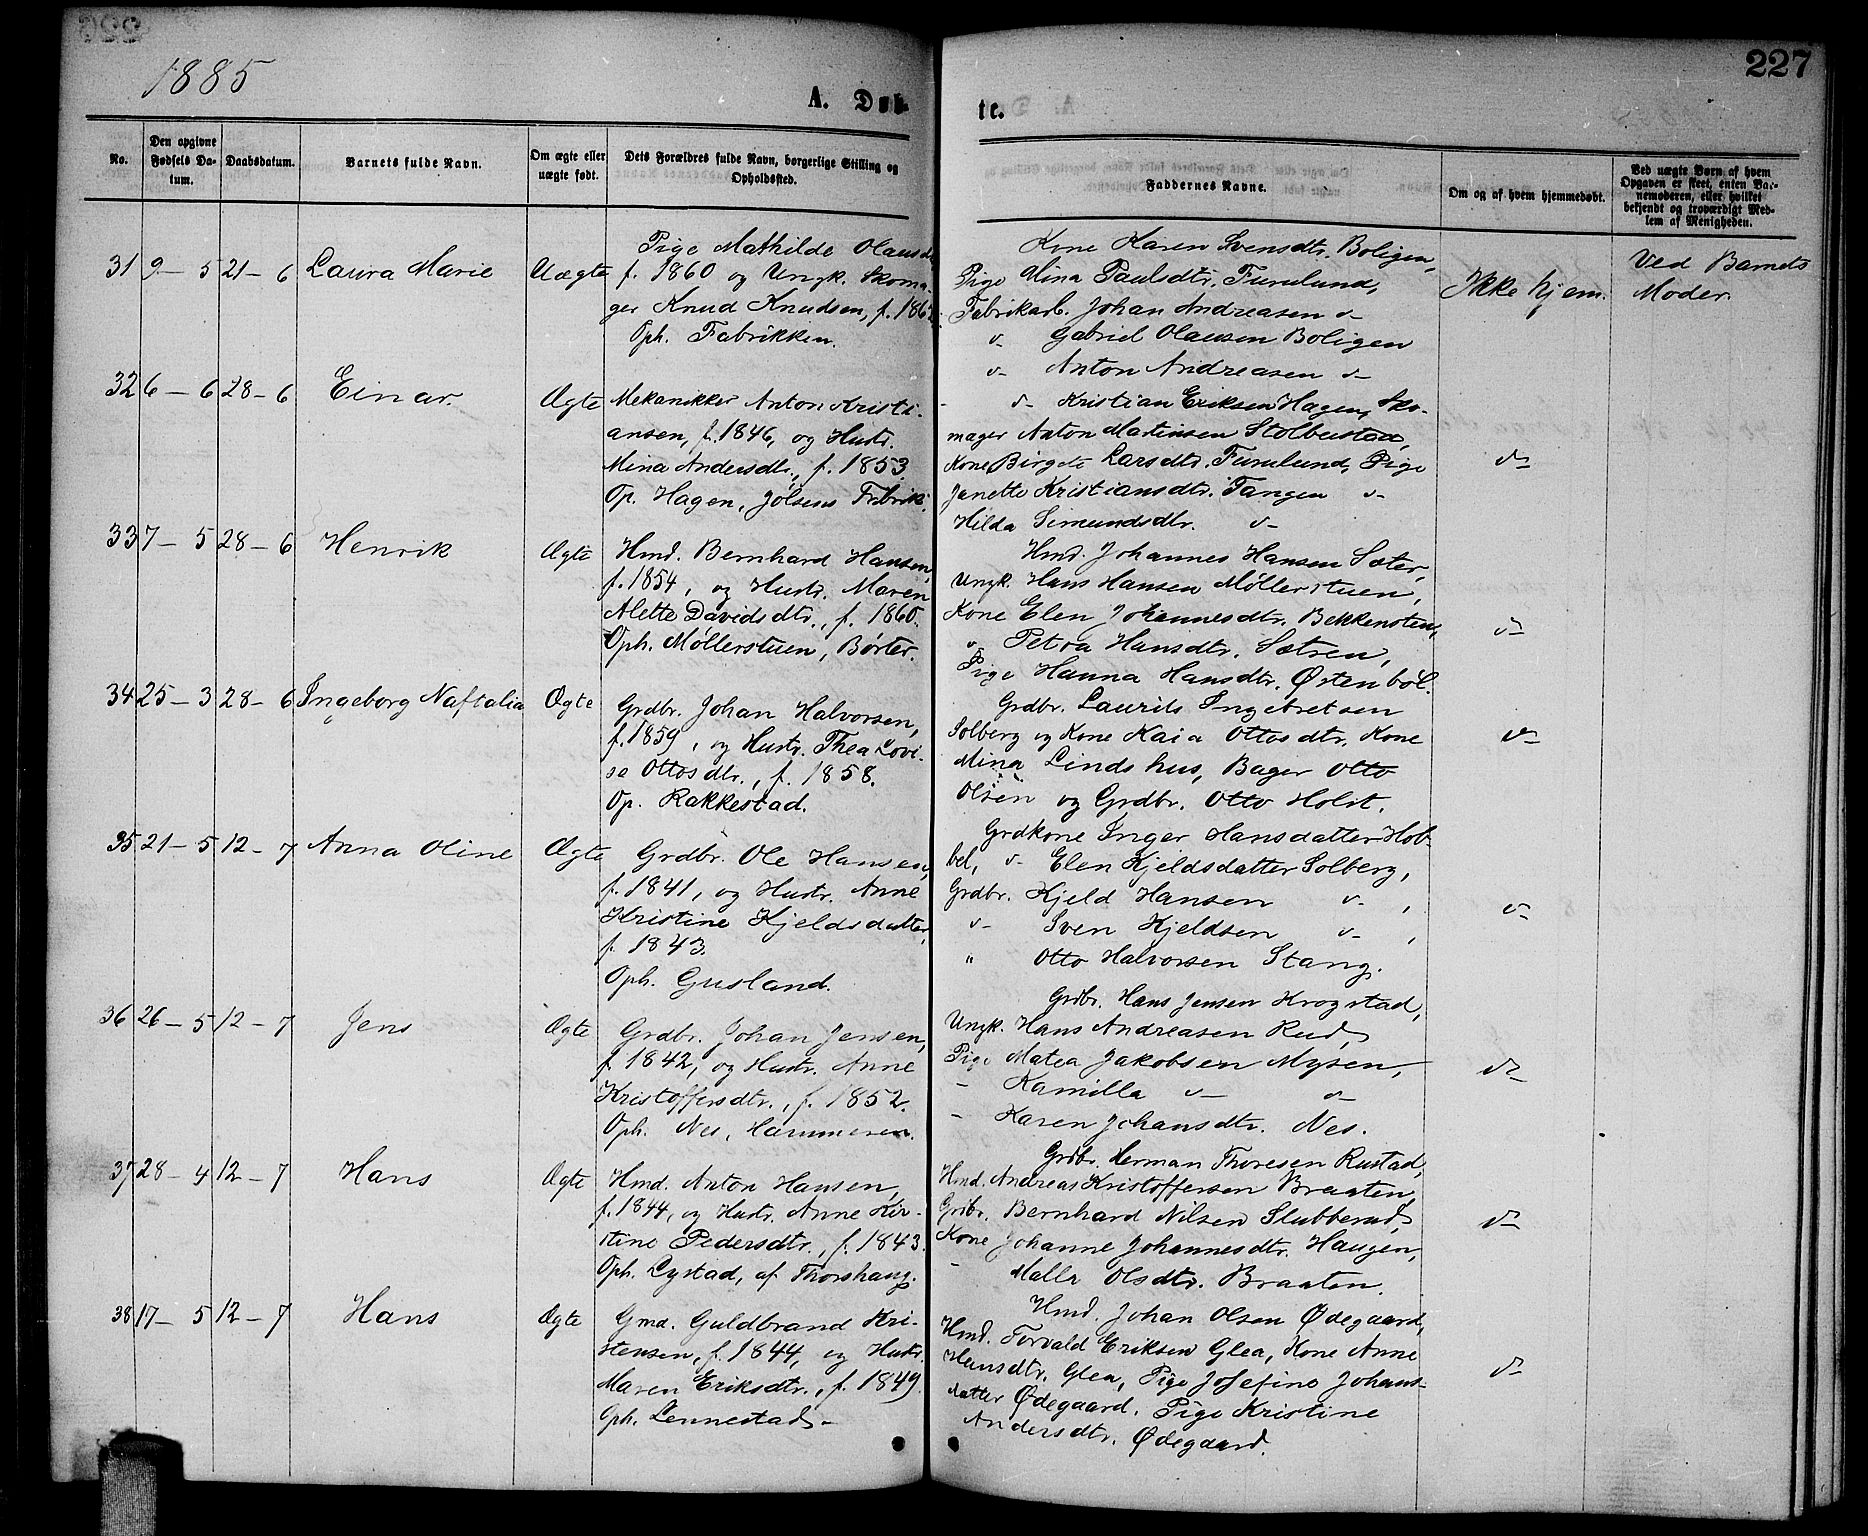 1885
227
A. Døb-
te.
No.
Den opgivne Fødsels Da-tum.
Daabsdatum.
Barnets fulde Navn.
Om ægte eller uægte født.
Dets Forældres fulde Navn, borgerlige Stilling og Opholdssted.
Faddernes Navne.
Om og af hvem hjemmedøbt.
Ved uægte Børn af hvem Opgaven er skeet, enten Bar-nemoderen, eller hvilket bekjendt og troværdigt Med-lem af Menigheden.
31 9 - 5 21 - 6 Laura Marie Uægte
Pige Mathilde Olausd.
f. 1860 og Ungk. Skoma-
ger Knud Knudsen, f. 186
Oph. Fabrikken.
Kone Karen Svensdtr. Boligen,
Pige Mina Paulsdtr. Furulund,
Fabrikarb. Johan Andreasen v-
v- Gabriel Olausen Boligen
v- Anton Andreasen v-
Ikke hjem.
Ved Barnets
Moder.
32 6 - 6 28 - 6 Einar. Ægte
Mekanikker Anton Kristi-
ansen, f. 1846, og Hustr.
Mina Andersdtr., f. 1853
Op. Hagen, Jølsens Fabrik.
- v- Kristian Eriksen Hagen, Sko-
mager Anton Martinsen Stolbustad,
Kone Birgete Larsdtr. Furulund, Pige
Janette Kristiansdtr. Tangen v-
Hilda Simundsdtr. v-
v-
33 7 - 5 28 - 6 Henrik Ægte
Hmd. Bernhard Hansen,
f. 1854, og Hustr. Maren
Alette Davidsdtr., f. 1860.
Oph. Møllerstuen, Børter.
Hmd. Johannes Hansen Sæter,
Ungk. Hans Hansen Møllerstuen,
Kone Elen Johannesdtr. Bekkensten,
v- Petra Hansdtr. Sætren,
Pige Hanna Hansdtr. Østenbøl.
v-
34 25 - 3 28 - 6 Ingeborg Naftalia Ægte
Grdbr. Johan Halvorsen,
f. 1859, og Hustr. Thea Lovi-
se Ottosdtr., f. 1858.
Op. Rakkestad.
Grdbr. Laurits Ingebretsen
Solberg og Kone Kaia Ottosdtr. Kone
Mina Lindshus, Bager Otto
Olsen og Grdbr. Otto Holst.
v-
35 21 - 5 12 - 7 Anna Oline Ægte
Grdbr. Ole Hansen,
f. 1841, og Hustr. Anne
Kristine Kjeldsdatter,
f. 1843.
Oph. Gusland.
Grdkone Inger Hansdatter Hob-
bel, v- Elen Kjeldsdatter Solberg,
Grdbr. Kjeld Hansen v- ,
v- Sven Kjeldsen v- ,
" Otto Halvorsen Stang.
v-
36 26 - 5 12 - 7 Jens Ægte
Grdbr. Johan Jensen,
f. 1842, og Hustr. Anne
Kristoffersdtr., f. 1852.
Oph. Nes, Hammeren.
Grdbr. Hans Jensen Krogstad,
Ungk. Hans Andreasen Rud,
Pige Matea Jakobsen Mysen,
- Kamilla v- v-
- Karen Johansdtr. Nes.
v-
37 28 - 4 12 - 7 Hans Ægte
Hmd. Anton Hansen,
f. 1844, og Hustr. Anne Kir-
stine Pedersdtr., f. 1843.
Oph. Lystad, af Thorshaug.
Grdbr. Herman Thoresen Rustad,
Hmd. Andreas Kristoffersen Braaten,
Grdbr. Bernhard Nilsen Slubberud,
Kone Johanne Johannesdtr. Haugen,
- Malla Olsdtr. Braaten.
v-
38 17 - 5 12 - 7 Hans Ægte
Gmd. Guldbrand Kri-
stensen, f. 1844, og Hustr.
Maren Eriksdtr., f. 1849.
Oph. Lennestad -
Hmd. Johan Olsen Ødegaard,
Hmd. Torvald Eriksen Glea, Kone Anne
Hansdtr. Glea, Pige Josefine Johans-
datter Ødegaard. Pige Kristine
Andersdtr. Ødegaard.
v-